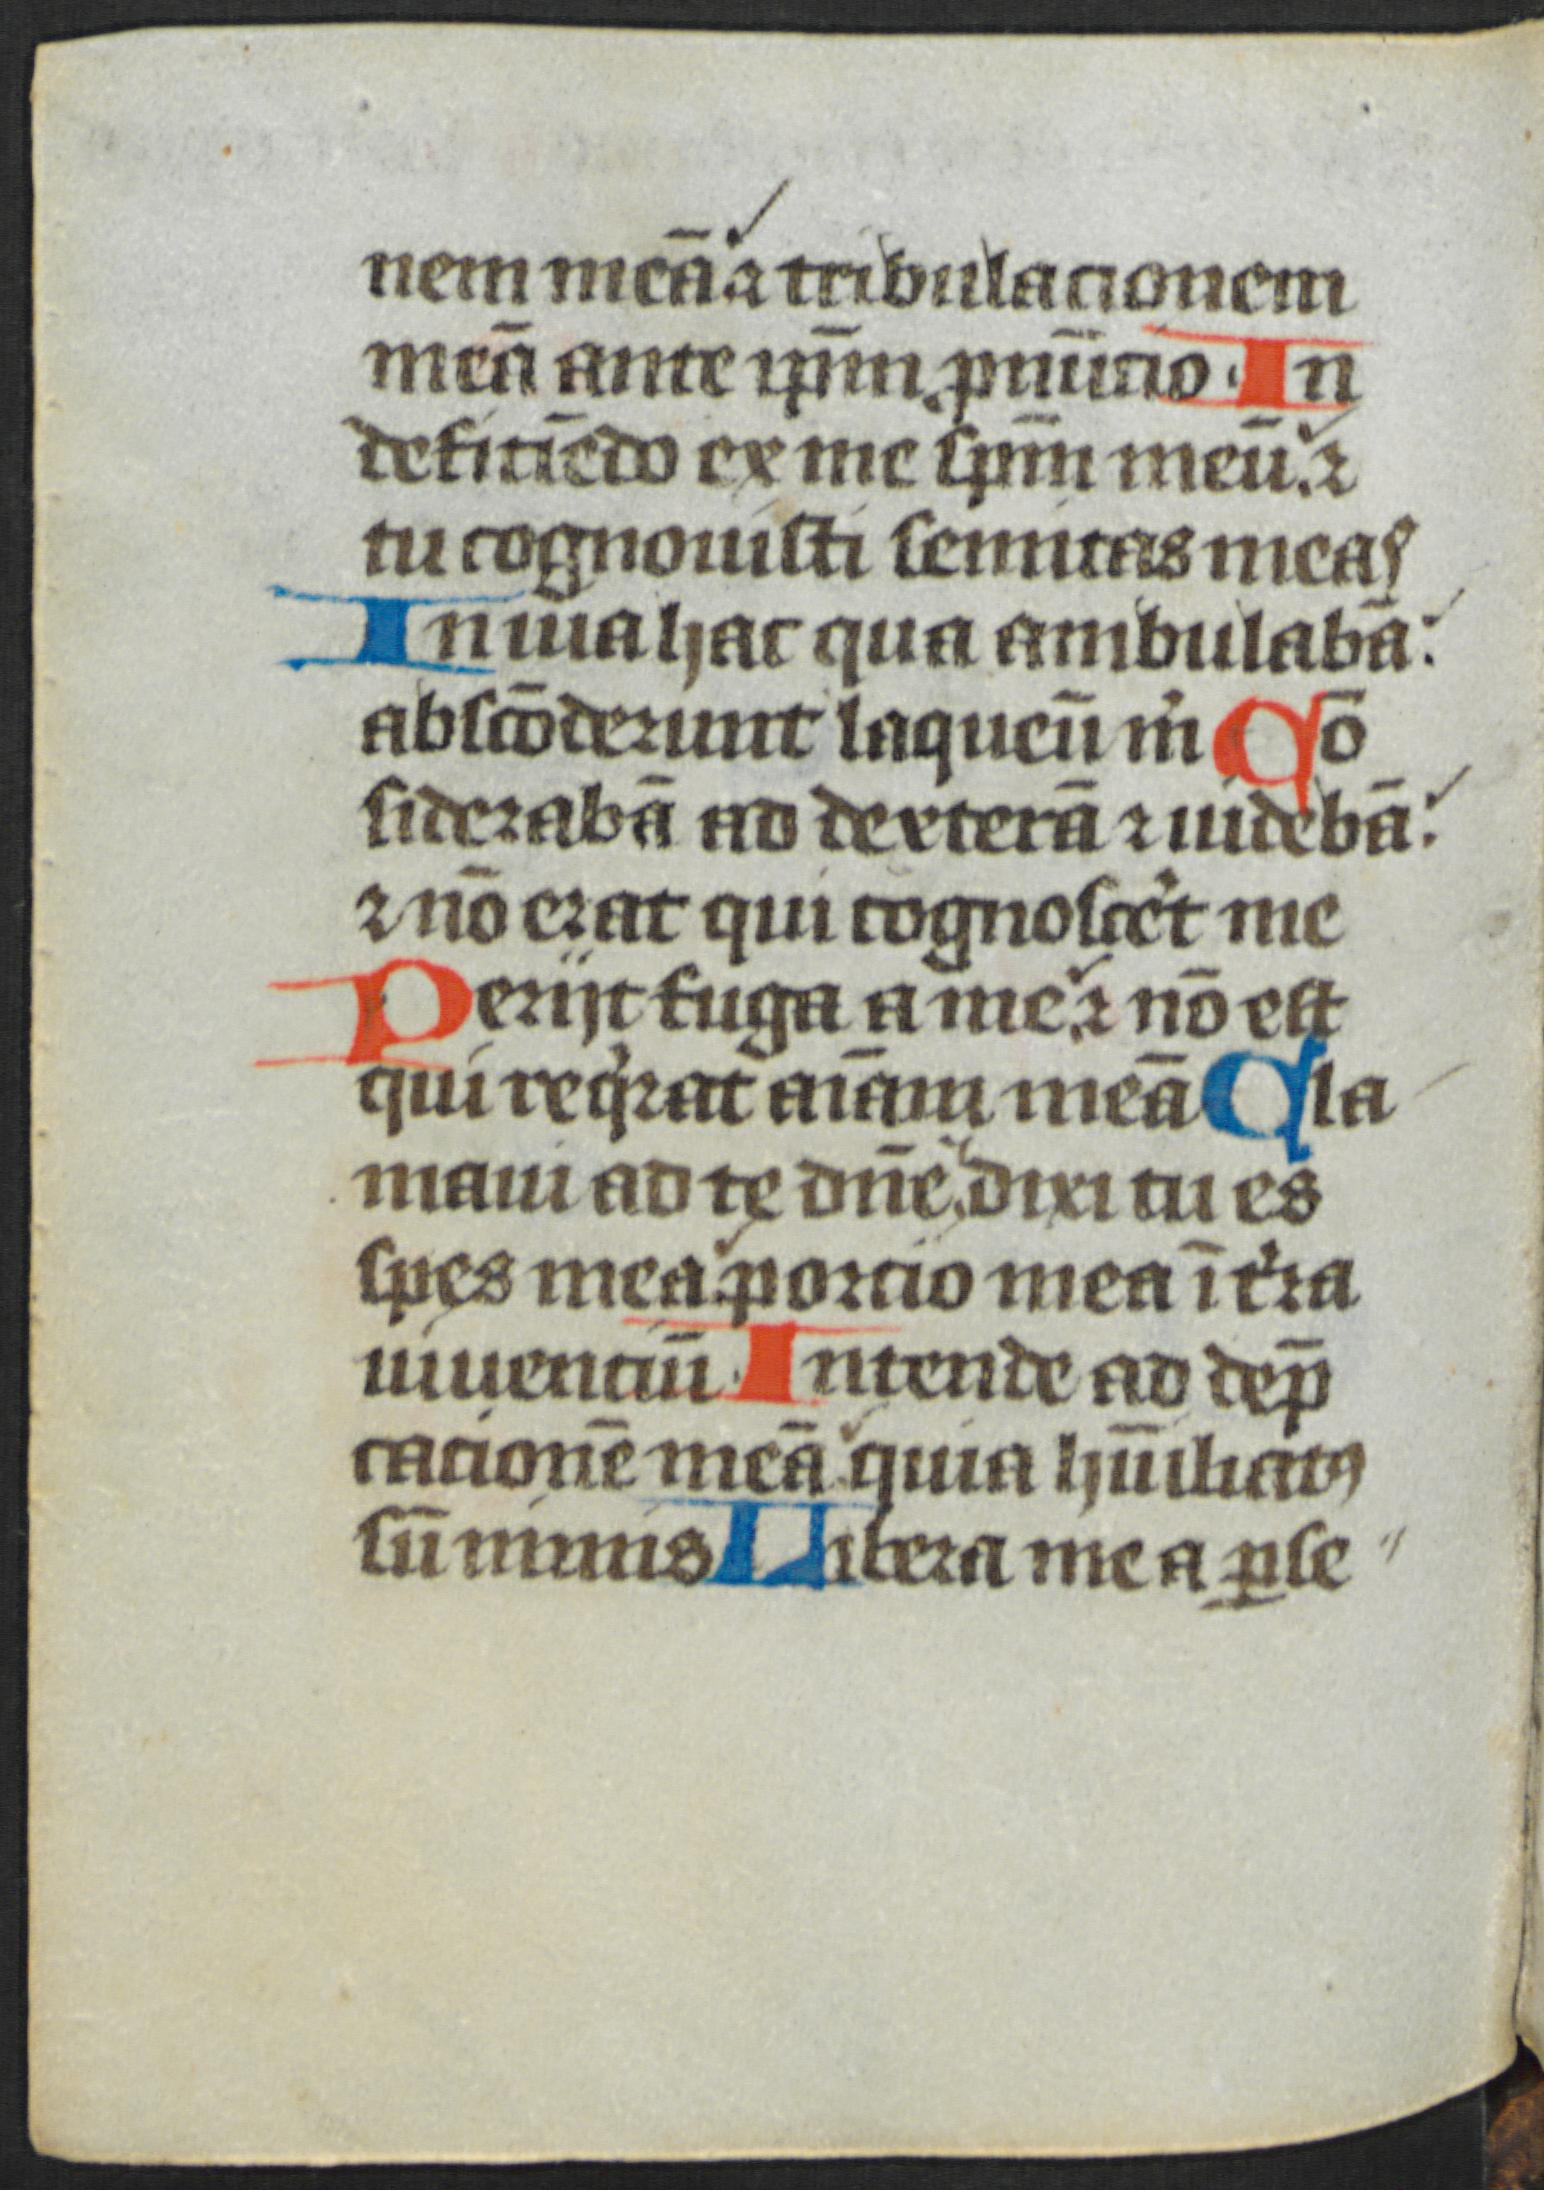 nem meā ⁊ tribulacionem
meā ante ip̄m ꝓnūcio · In
deficiēdo ex me sp̄m meū. ⁊
tu cognouisti semitas meas
In uia hac qua ambulabā:
abscōderunt laqueū m̄ Cō
siderabā ad dexterā ⁊ uidebā:
⁊ nō erat qui cognosc̾et me
Perijt fuga a me. ⁊ nō est
qui reqͥrat aīam meā Cla
maui ad te dn̄e. dixi tu es
spes mea. porcio mea ī t̾ra
uiuenciū · Intende ad dep̄
cacionē meā. quia hūiliatꝰ
sū nimis Libera me a ꝑse〃